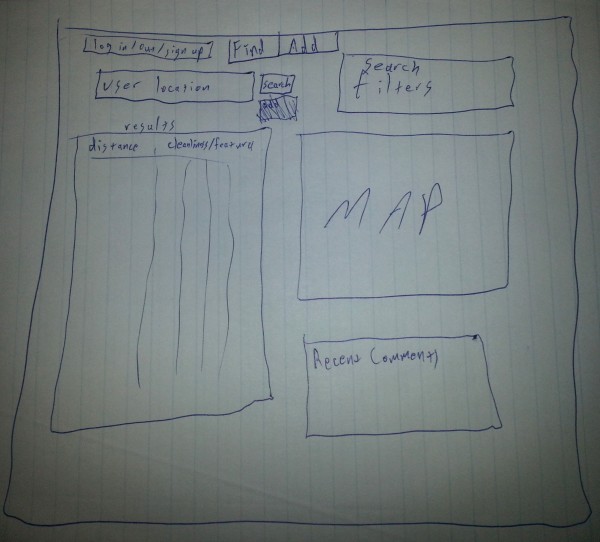 log in/out/sign up
Find
Add
User location
search
add
Search
filters
results
distance
cleanliness/features
MAP
Recent Comments